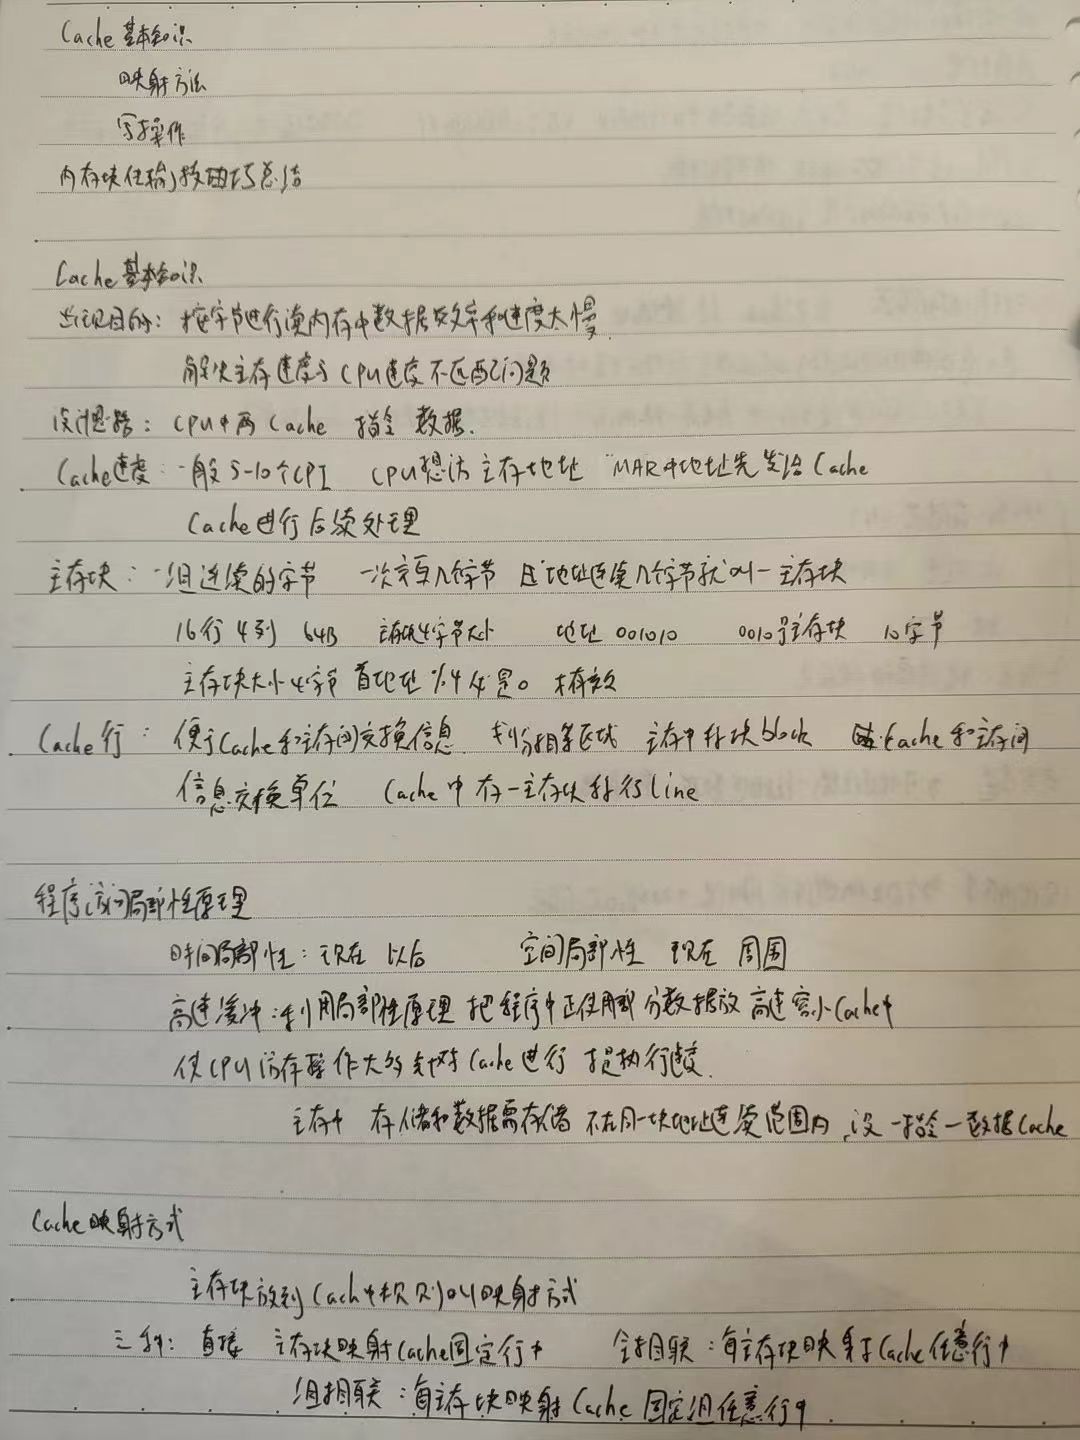 Cache基本知识
映射方法
写操作
内存块传输
Cache基本知识
出现目的：按字节进行读内存中数据效率和速度太慢.
解决主存速度与CPU速度不匹配问题
设计思路：CPU中两Cache 指令 数据.
Cache速度：一般5-10个CPI CPU想访主存地址 MAR中地址先发给Cache
Cache进行后续处理
主存块：一组连续的字节 一次读几个字节 且地址连续几个字节就叫一主存块
16行 4列 64B 主存块4字节大小 地址 001010 0010号主存块 10字节
主存块大小4字节 首地址%4是0 才有效
Cache行：便于Cache和主存间交换信息. 划分相等区域 主存中称块block 是Cache和主存间
信息交换单位 Cache中存一主存块称行line
程序访问局部性原理
时间局部性：现在 以后 空间局部性 现在 周围
高速缓冲：利用局部性原理 把程序中正使用部分数据放高速容小Cache中
使CPU访存操作大多针对Cache进行 提执行速度.
主存中 存储和数据需存储 不在同一块地址连续范围内, 设一指令一数据Cache
Cache映射方式
主存块放到Cach中规则叫映射方式
三种：直接 主存块映射Cache固定行中 全相联：每主存块映射于Cache任意行中
组相联：每主存块映射Cache固定组任意行中